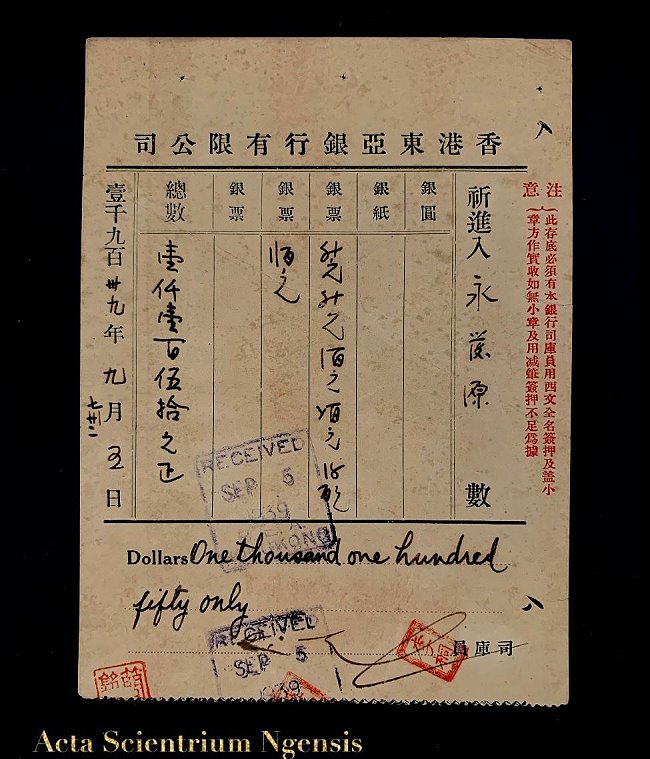 香港東亞銀行有限公司
注意
此存底必須有本銀行司庫員用西文全名簽押及蓋小
章方作實收如無小章及用减雖簽押不足為據
祈進入永 原 數
銀圓
銀紙
銀票
銀票
佰元
銀票
總數
壹仟壹百伍拾元正
壹千九百卅九年九月五日
RECEIVED
SEP 5
1939
KONG
Dollars One thousand one hundred
fifty only
RECEIVED
SEP 5
1939
司庫員
Acta Scientrium Ngensis